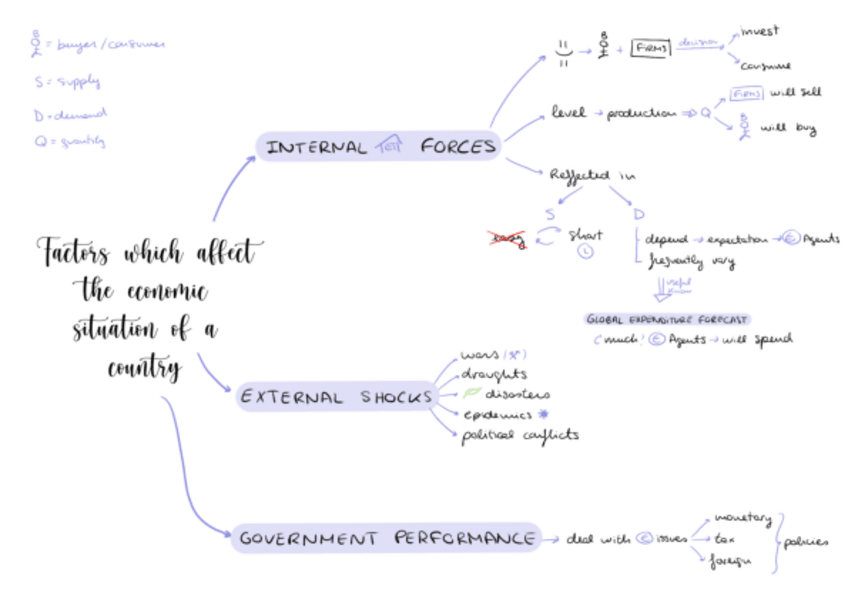 = buyer/consumer
S = supply
D = demand
Q = quantity
Factors which affect
the economic
situation of a
country
INTERNAL FORCES
→ + FIRMS decision
invest
consume
level → production ⇒ Q
FIRMS will sell
will buy
Reflected in
S
D
easy
short
L
depend → expectation → E Agents
frequently vary
useful
GLOBAL EXPENDITURE FORECAST
¿much? E Agents → will spend
EXTERNAL SHOCKS
wars
droughts
disasters
epidemics
political conflicts
GOVERNMENT PERFORMANCE → deal with E issues
monetary
tax
foreign
policies